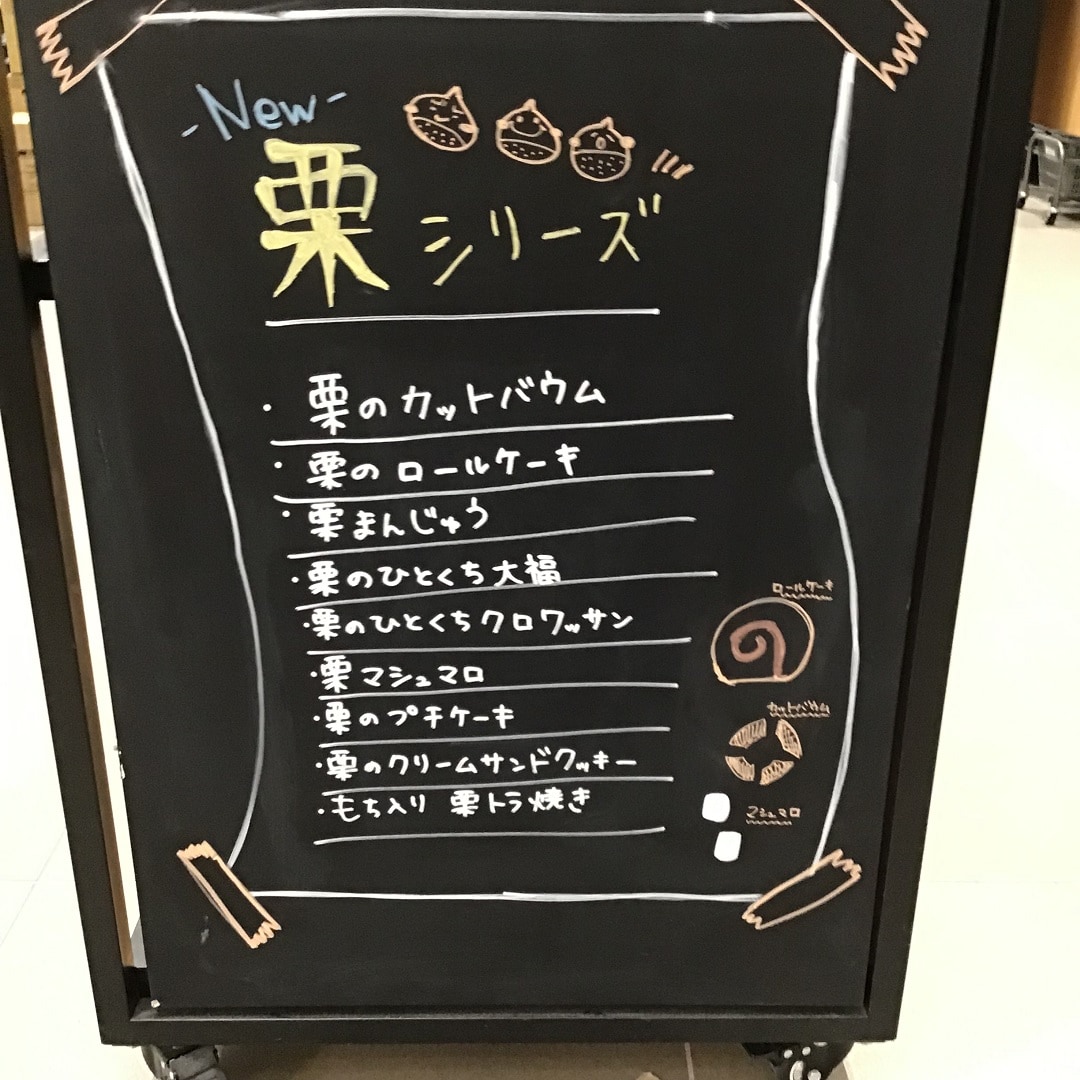 -New-
栗シリーズ
・栗のカットバウム
・栗のロールケーキ
・栗まんじゅう
・栗のひとくち大福
・栗のひとくちクロワッサン
・栗マシュマロ
・栗のプチケーキ
・栗のクリームサンドクッキー
・もち入り 栗トラ焼き
ロールケーキ
カットバウム
マシュマロ